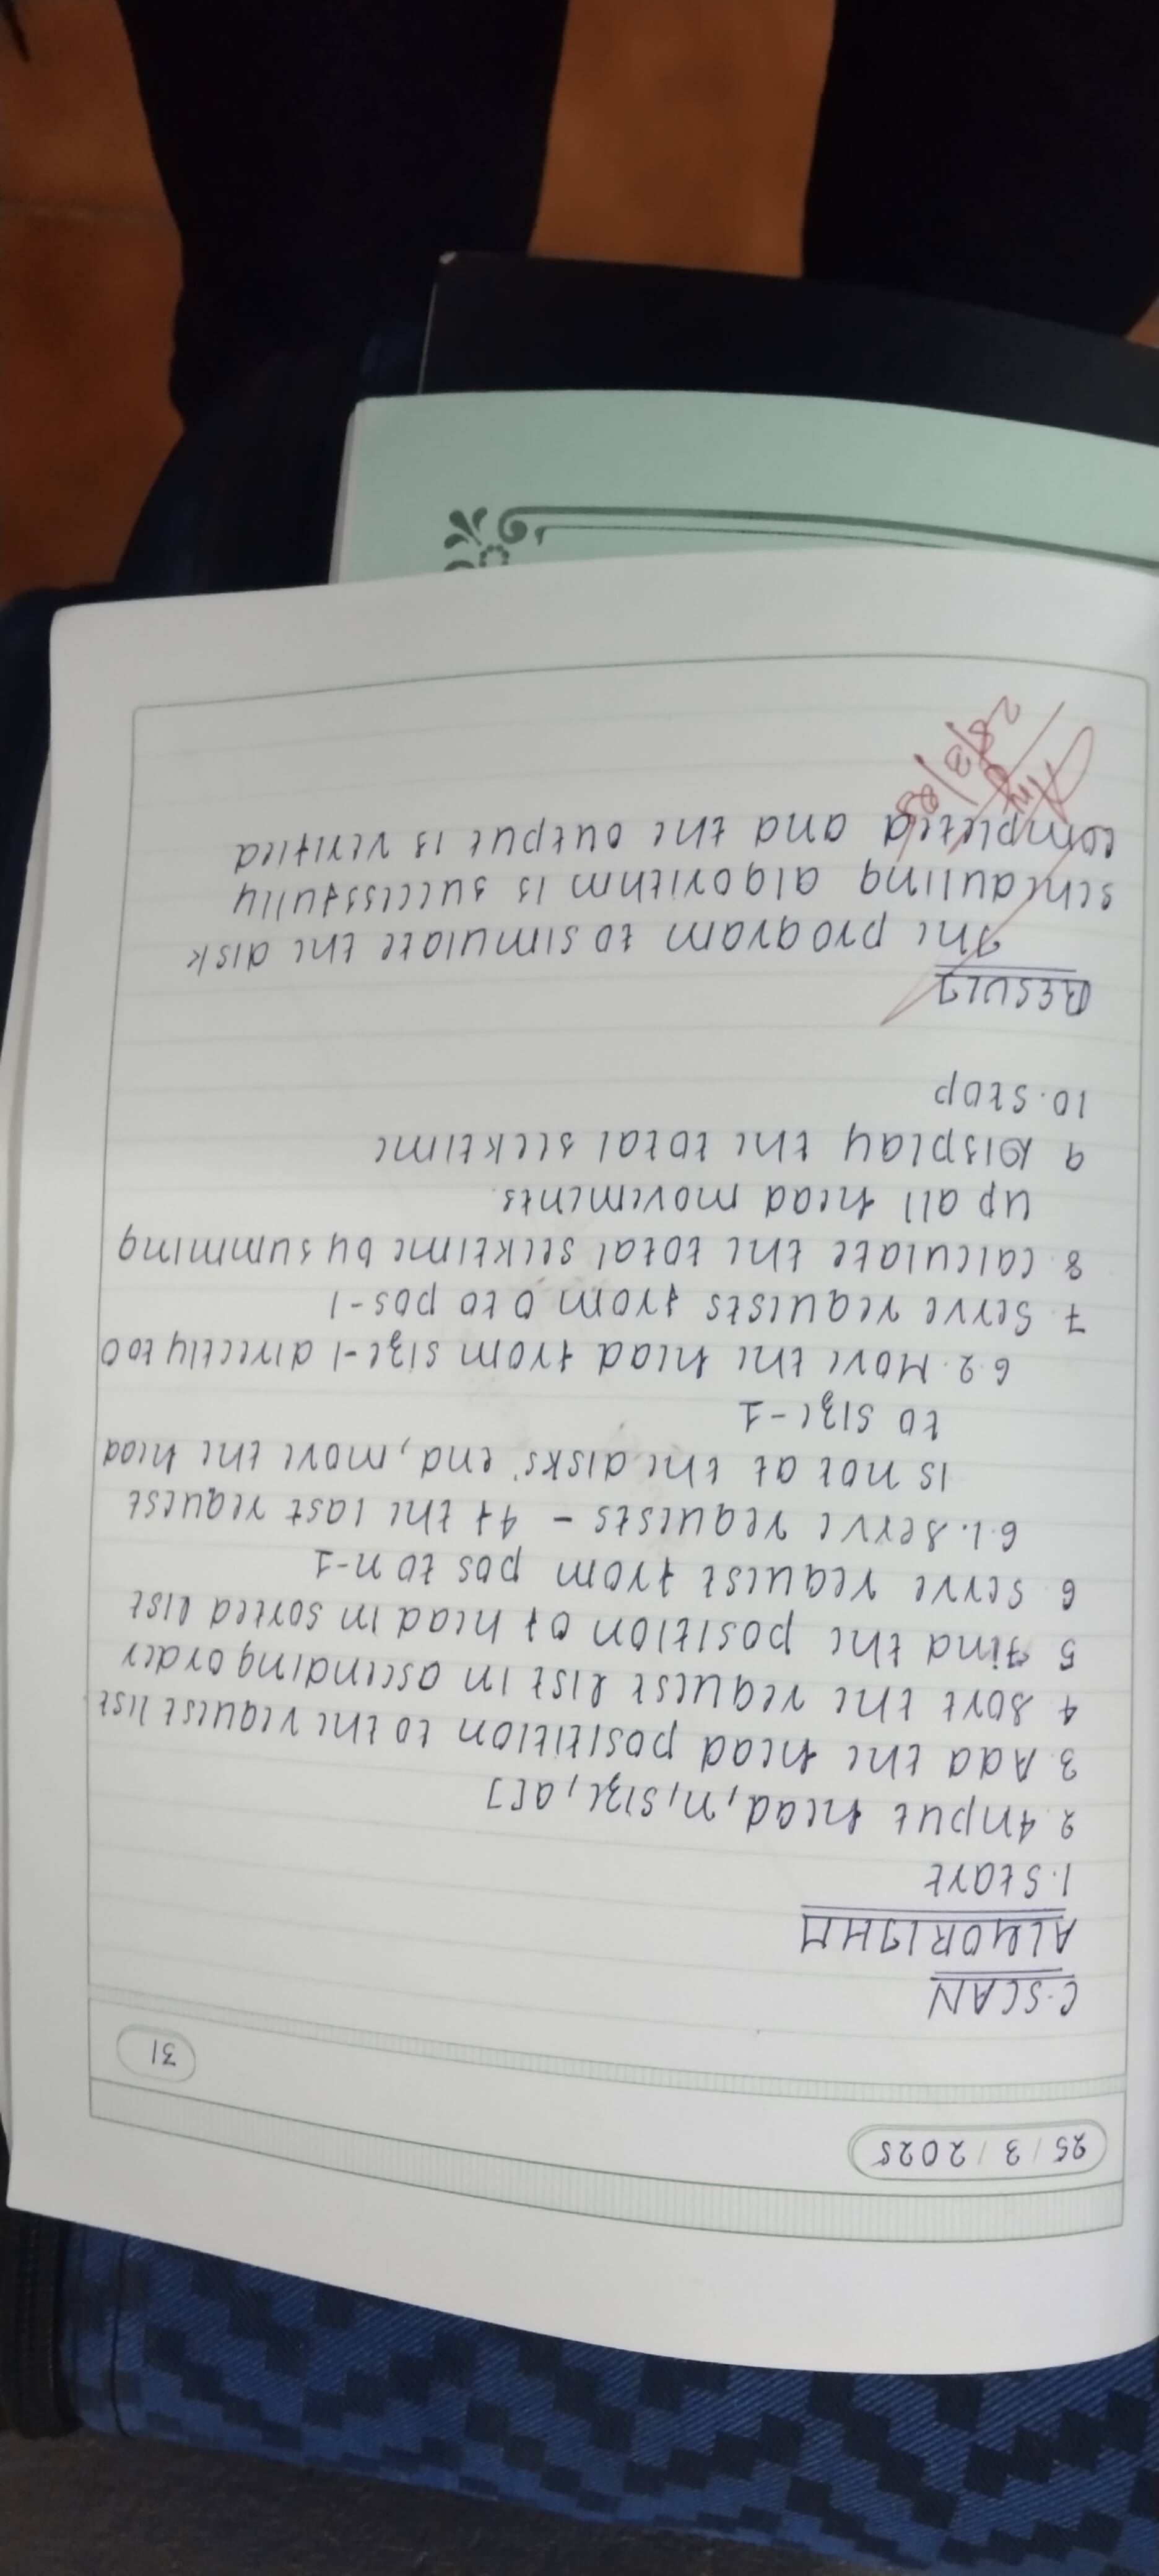 25/3/2025
31
C-SCAN
ALGORITHM
1. Start
2. Input head, n, size, a[]
3. Add the head positition to the request list
4 Sort the request list in ascending order
5 Find the position of head in sorted list
6 Serve request from pos to n-1
6.1. Serve requests - If the last request
is not at the disks' end, move the head
to size-1
6.2. Move the head from size-1 directly to 0
7. Serve requests from 0 to pos-1
8 Calculate the total seektime by summing
up all head movements.
9 Display the total seektime
10. Stop
RESULT
The program to simulate the disk
scheduling algorithm is successfully
completed and the output is verified
28/3/25